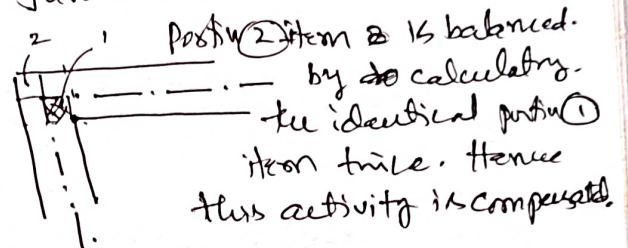 2 1 Portion ② item is balanced.
by calculating.
the identical portion ①
item twice. Hence
this activity is compensated.